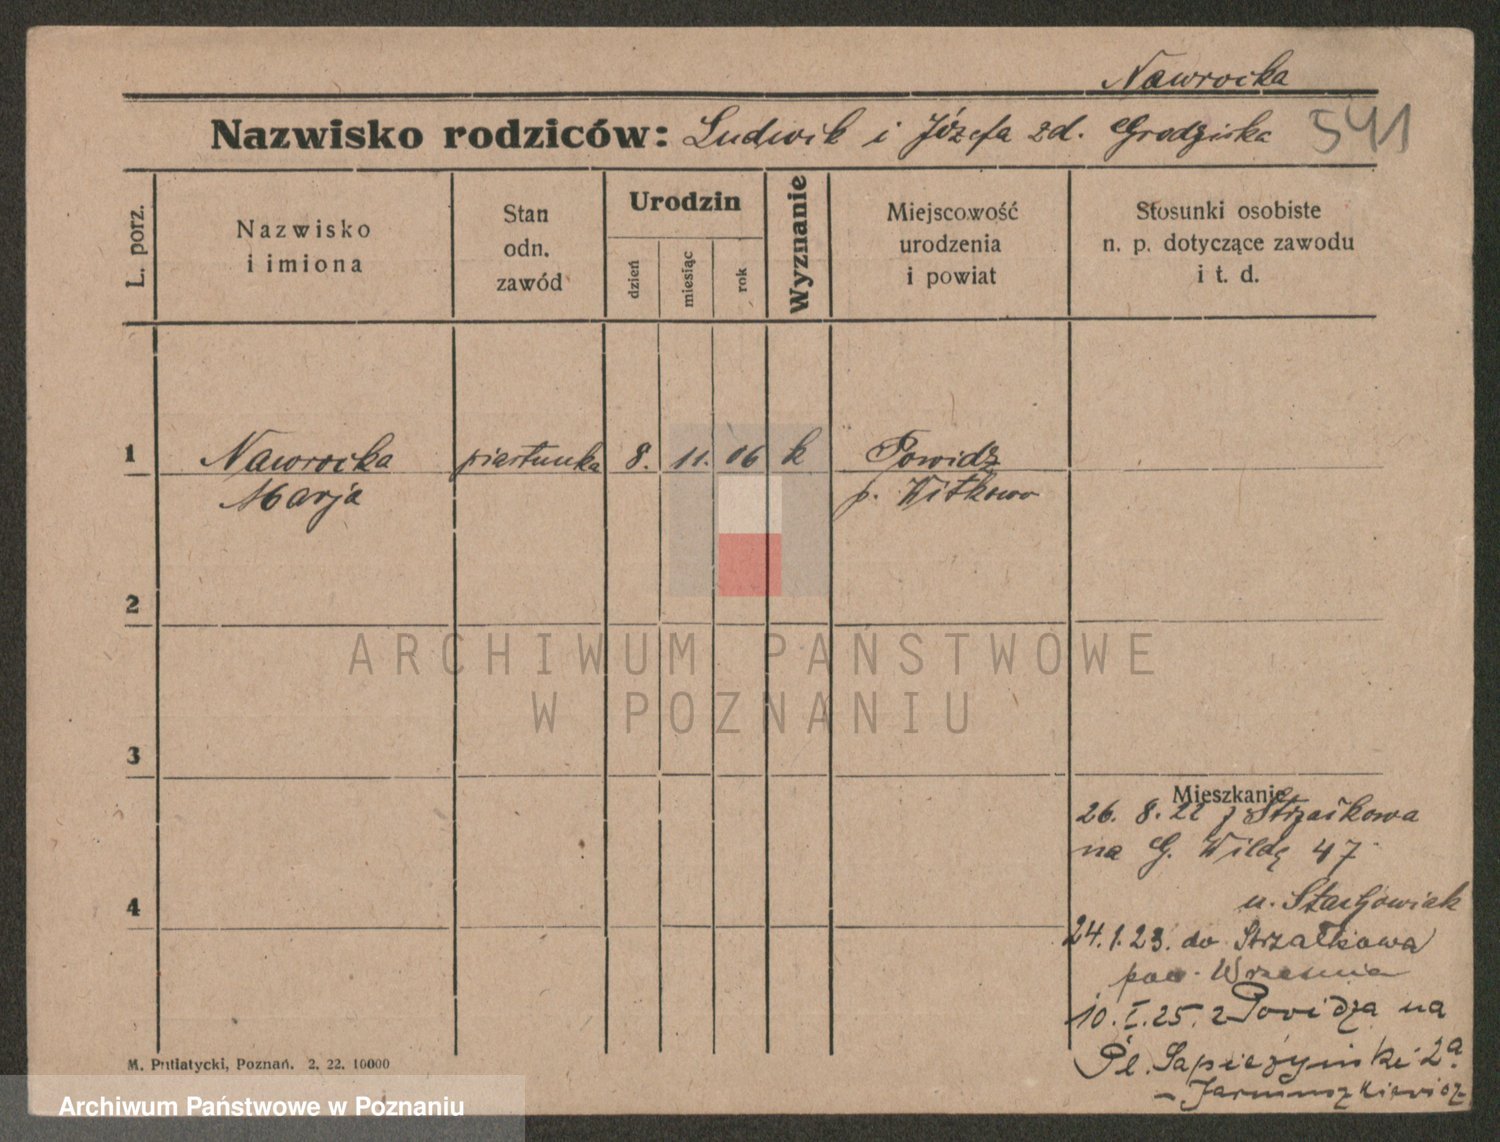 Nawrocka
Nazwisko rodziców: Ludwik i Józefa zd. Grodziska 541
L. porz.
Nazwisko
i imiona
Stan
odn.
zawód
Urodzin
dzień
miesiąc
rok
Wyznanie
Miejscowość
urodzenia
i powiat
Stosunki osobiste
n. p. dotyczące zawodu
i t. d.
1 Nawrocka piastunka 8. 11. 06 k Powidz
Marja p. Witkowo
2
ARCHIWUM PAŃSTWOWE
W POZNANIU
3
Mieszkanie
26. 8. 22 z Strzałkowa
na G. Wildę 47
u. Stachowiak
4
24. 1. 23. do Strzałkowa
pow. Września
10. I. 25. z Powidza na
Pl. Sapieżyński 2a.
M. Putiatycki, Poznań. 2. 22. 10000
– Jarmuszkiewicz
Archiwum Państwowe w Poznaniu